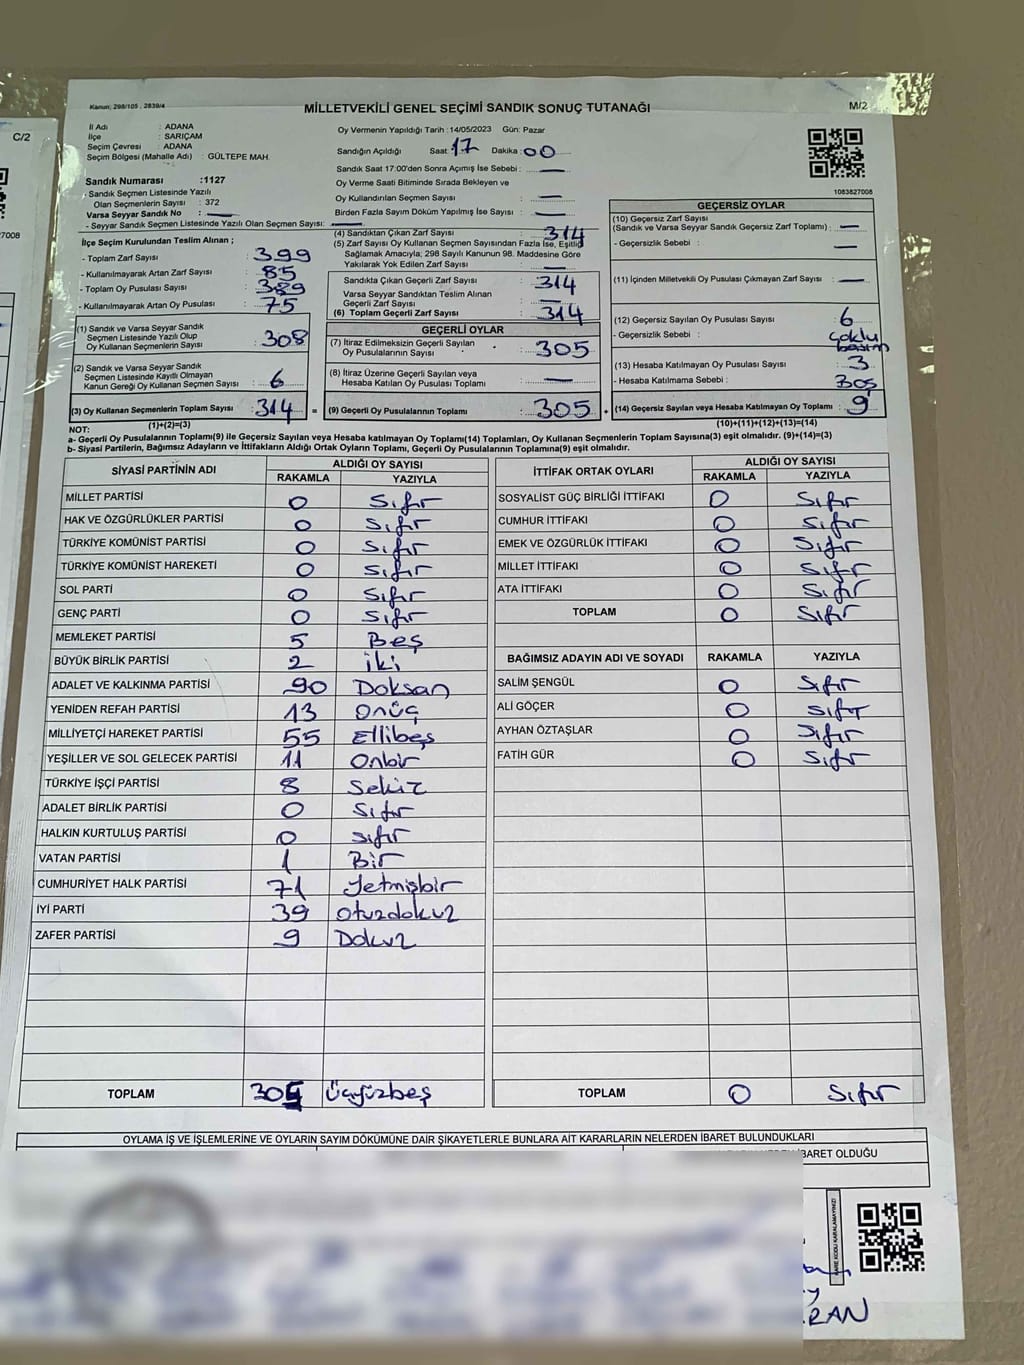 C/2
7008
Kanun, 298/105 , 2839/4
MİLLETVEKİLİ GENEL SEÇİMİ SANDIK SONUÇ TUTANAĞI
M/2
İl Adı : ADANA
İlçe : SARIÇAM
Seçim Çevresi : ADANA
Seçim Bölgesi (Mahalle Adı) : GÜLTEPE MAH.
Sandık Numarası :1127
- Sandık Seçmen Listesinde Yazılı
Olan Seçmenlerin Sayısı : 372
Varsa Seyyar Sandık No : —
- Seyyar Sandık Seçmen Listesinde Yazılı Olan Seçmen Sayısı: —
Oy Vermenin Yapıldığı Tarih :14/05/2023 Gün: Pazar
Sandığın Açıldığı Saat: 17 Dakika: 00
Sandık Saati 17:00'den Sonra Açımış İse Sebebi : —
Oy Verme Saati Bitiminde Sırada Bekleyen ve
Oy Kullandırılan Seçmen Sayısı : —
Birden Fazla Sayım Döküm Yapılmış İse Sayısı : —
1083827008
İlçe Seçim Kurulundan Teslim Alınan ;
- Toplam Zarf Sayısı : 399
- Kullanılmayarak Artan Zarf Sayısı : 85
- Toplam Oy Pusulası Sayısı : 389
- Kullanılmayarak Artan Oy Pusulası : 75
(1) Sandık ve Varsa Seyyar Sandık
Seçmen Listesinde Yazılı Olup
Oy Kullanan Seçmenlerin Sayısı : 308
(2) Sandık ve Varsa Seyyar Sandık
Seçmen Listesinde Kayıtlı Olmayan
Kanun Gereği Oy Kullanan Seçmen Sayısı : 6
(3) Oy Kullanan Seçmenlerin Toplam Sayısı : 314 =
(1)+(2)=(3)
(4) Sandıktan Çıkan Zarf Sayısı : 314
(5) Zarf Sayısı Oy Kullanan Seçmen Sayısından Fazla İse, Eşitliği
Sağlamak Amacıyla; 298 Sayılı Kanunun 98. Maddesine Göre
Yakılarak Yok Edilen Zarf Sayısı : —
Sandıkta Çıkan Geçerli Zarf Sayısı : 314
Varsa Seyyar Sandıktan Teslim Alınan
Geçerli Zarf Sayısı : —
(6) Toplam Geçerli Zarf Sayısı : 314
GEÇERLİ OYLAR
(7) İtiraz Edilmeksizin Geçerli Sayılan
Oy Pusulalarının Sayısı : 305
(8) İtiraz Üzerine Geçerli Sayılan veya
Hesaba Katılan Oy Pusulası Toplamı : —
(9) Geçerli Oy Pusulalarının Toplamı : 305 +
GEÇERSİZ OYLAR
(10) Geçersiz Zarf Sayısı
(Sandık ve Varsa Seyyar Sandık Geçersiz Zarf Toplamı) : —
- Geçersizlik Sebebi : —
(11) İçinden Milletvekili Oy Pusulası Çıkmayan Zarf Sayısı : —
(12) Geçersiz Sayılan Oy Pusulası Sayısı : 6
- Geçersizlik Sebebi : çoklu
basım
(13) Hesaba Katılmayan Oy Pusulası Sayısı : 3
- Hesaba Katılmama Sebebi : boş
(14) Geçersiz Sayılan veya Hesaba Katılmayan Oy Toplamı : 9
(10)+(11)+(12)+(13)=(14)
NOT:
a- Geçerli Oy Pusulalarının Toplamı(9) ile Geçersiz Sayılan veya Hesaba katılmayan Oy Toplamı(14) Toplamları, Oy Kullanan Seçmenlerin Toplam Sayısına(3) eşit olmalıdır. (9)+(14)=(3)
b- Siyasi Partilerin, Bağımsız Adayların ve İttifakların Aldığı Ortak Oyların Toplamı, Geçerli Oy Pusulalarının Toplamına(9) eşit olmalıdır.
SİYASİ PARTİNİN ADI
ALDIĞI OY SAYISI
RAKAMLA YAZIYLA
MİLLET PARTİSİ 0 Sıfır
HAK VE ÖZGÜRLÜKLER PARTİSİ 0 Sıfır
TÜRKİYE KOMÜNİST PARTİSİ 0 Sıfır
TÜRKİYE KOMÜNİST HAREKETİ 0 Sıfır
SOL PARTİ 0 Sıfır
GENÇ PARTİ 0 Sıfır
MEMLEKET PARTİSİ 5 Beş
BÜYÜK BİRLİK PARTİSİ 2 iki
ADALET VE KALKINMA PARTİSİ 90 Doksan
YENİDEN REFAH PARTİSİ 13 Onüç
MİLLİYETÇİ HAREKET PARTİSİ 55 Ellibeş
YEŞİLLER VE SOL GELECEK PARTİSİ 11 Onbir
TÜRKİYE İŞÇİ PARTİSİ 8 Sekiz
ADALET BİRLİK PARTİSİ 0 Sıfır
HALKIN KURTULUŞ PARTİSİ 0 sıfır
VATAN PARTİSİ 1 Bir
CUMHURİYET HALK PARTİSİ 71 Yetmişbir
İYİ PARTİ 39 Otuzdokuz
ZAFER PARTİSİ 9 Dokuz
TOPLAM 305 Üçyüzbeş
İTTİFAK ORTAK OYLARI
ALDIĞI OY SAYISI
RAKAMLA YAZIYLA
SOSYALİST GÜÇ BİRLİĞİ İTTİFAKI 0 Sıfır
CUMHUR İTTİFAKI 0 Sıfır
EMEK VE ÖZGÜRLÜK İTTİFAKI 0 Sıfır
MİLLET İTTİFAKI 0 Sıfır
ATA İTTİFAKI 0 Sıfır
TOPLAM 0 Sıfır
BAĞIMSIZ ADAYIN ADI VE SOYADI RAKAMLA YAZIYLA
SALİM ŞENGÜL 0 Sıfır
ALİ GÖÇER 0 Sıfır
AYHAN ÖZTAŞLAR 0 Sıfır
FATİH GÜR 0 Sıfır
TOPLAM 0 Sıfır
OYLAMA İŞ VE İŞLEMLERİNE VE OYLARIN SAYIM DÖKÜMÜNE DAİR ŞİKAYETLERLE BUNLARA AİT KARARLARIN NELERDEN İBARET BULUNDUKLARI
İBARET OLDUĞU
KARE KODU KARALAMAYINIZ!
RAN